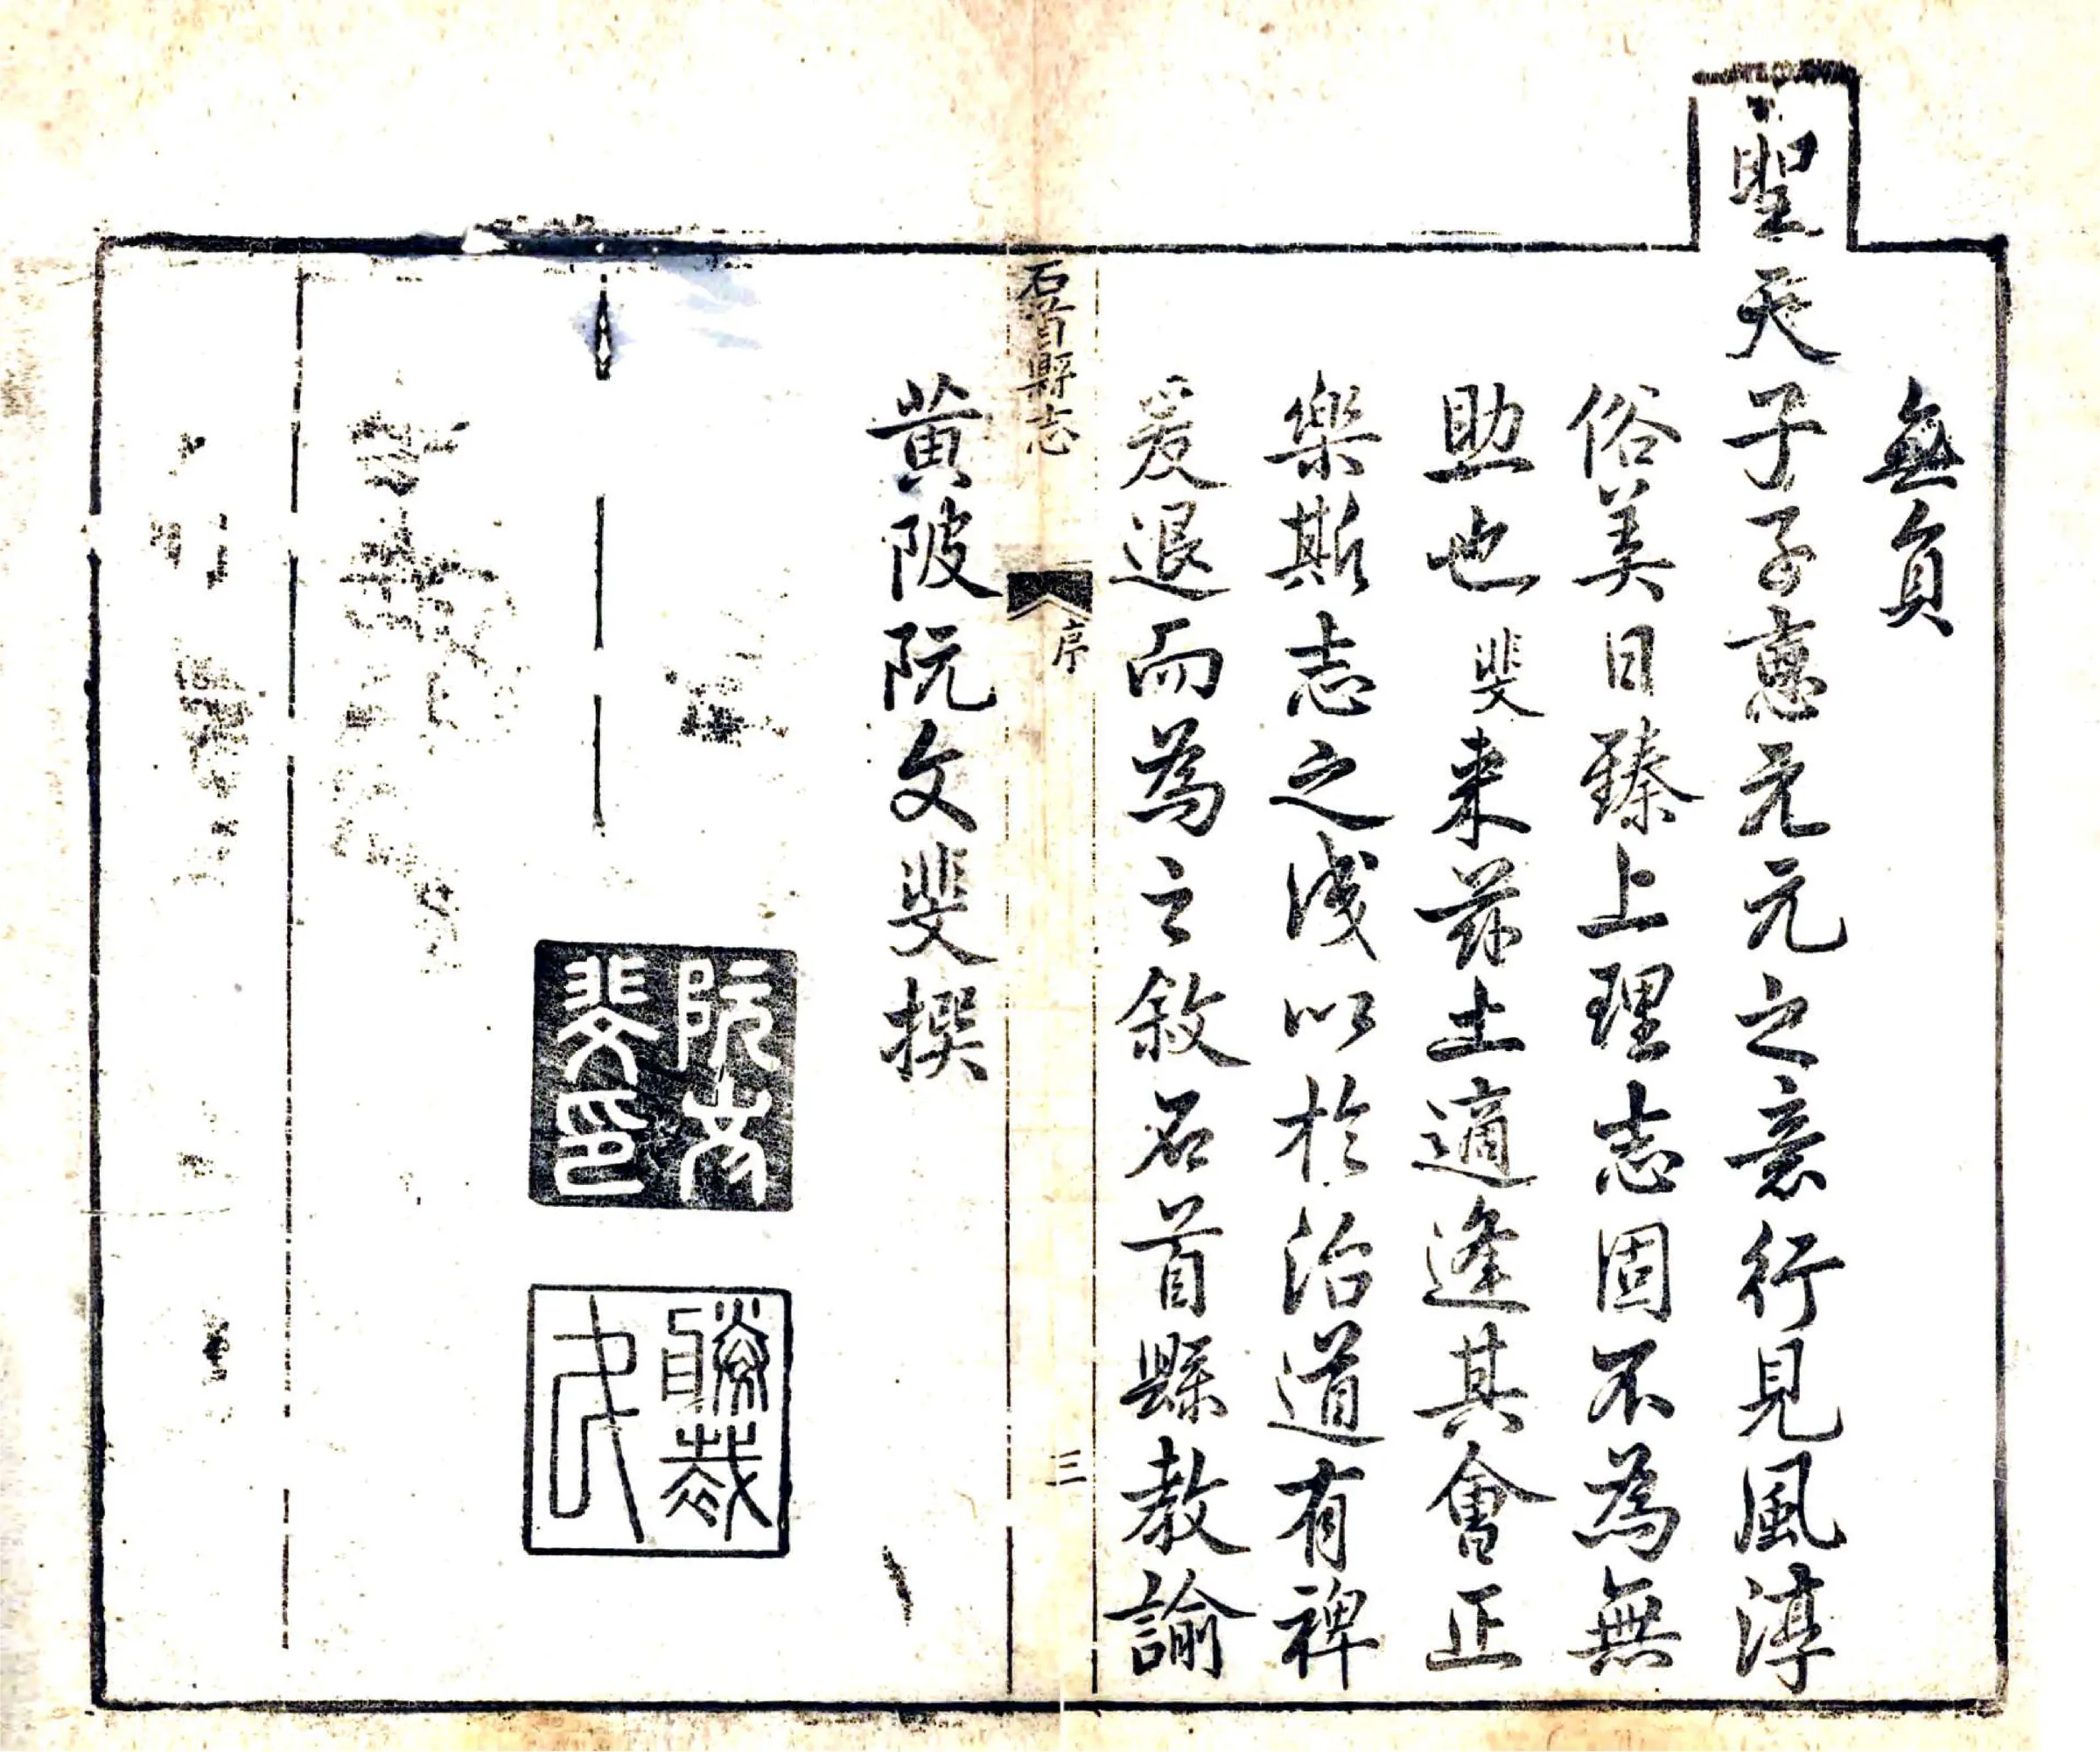 無負
聖天子子惠元元之意行見風淳
俗美日臻上理志固不為無
助也斐来茲土適逢其會正
樂斯志之成以於治道有裨
爰退而為之敘石首縣教諭
石首縣志 序 三
黄陂阮文斐撰
阮文
斐印